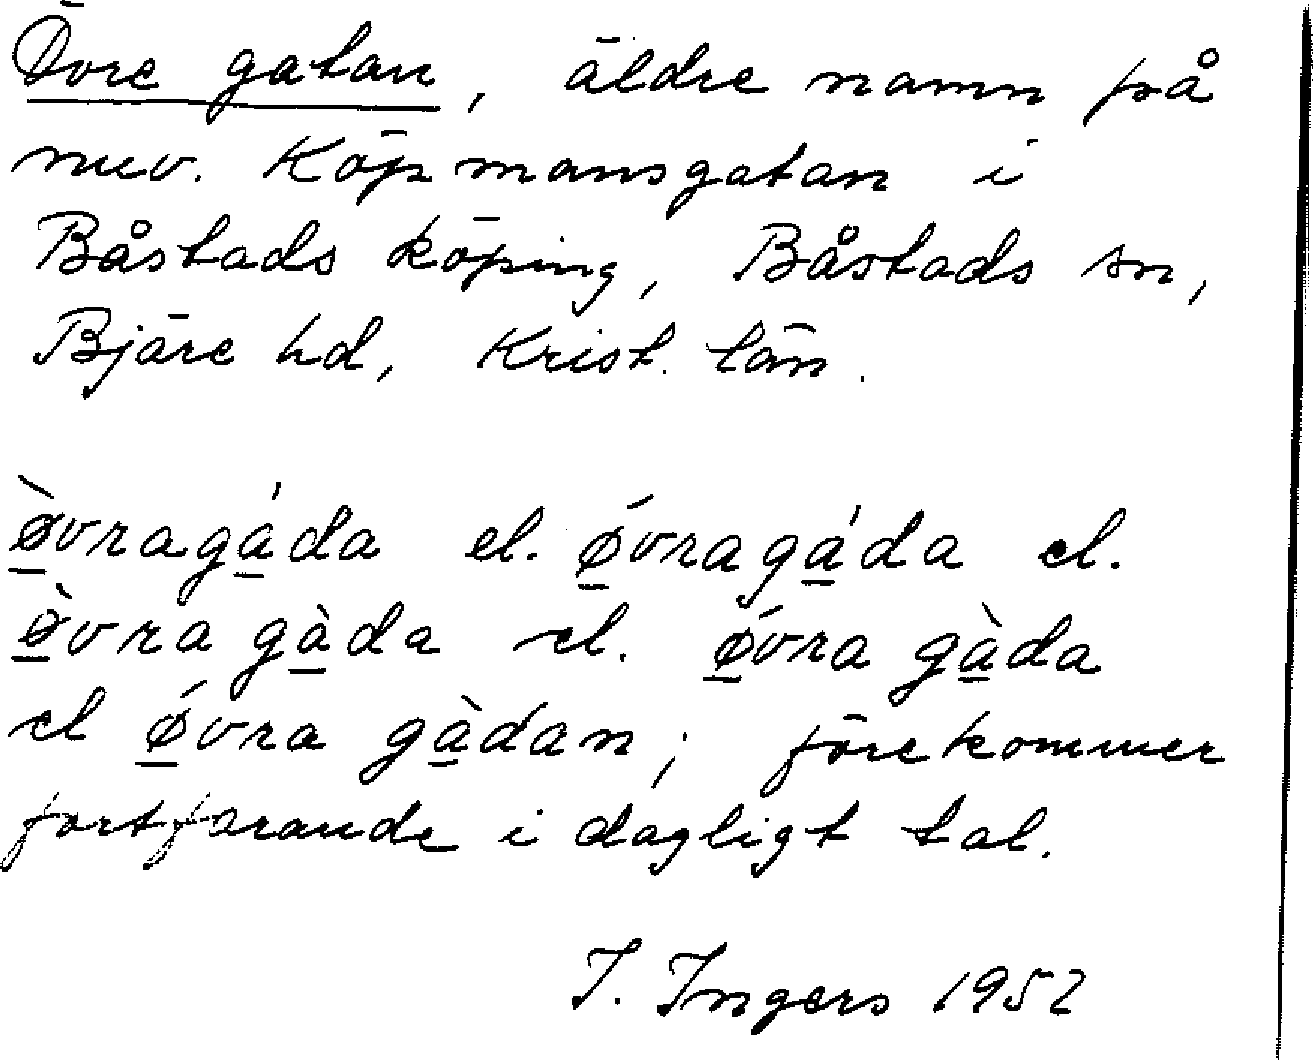 Övre gatan, äldre namn på
nuv. Köpmansgatan i
Båstads köping, Båstads sn,
Bjäre hd, Krist. län.
ø̲̀vragá̲da el. ǿ̲vragá̲da el.
ø̲̀vra gà̲da el. ǿ̲vra gà̲da
el ǿ̲vra gà̲dan; förekommer
fortfarande i dagligt tal.
I. Ingers 1952